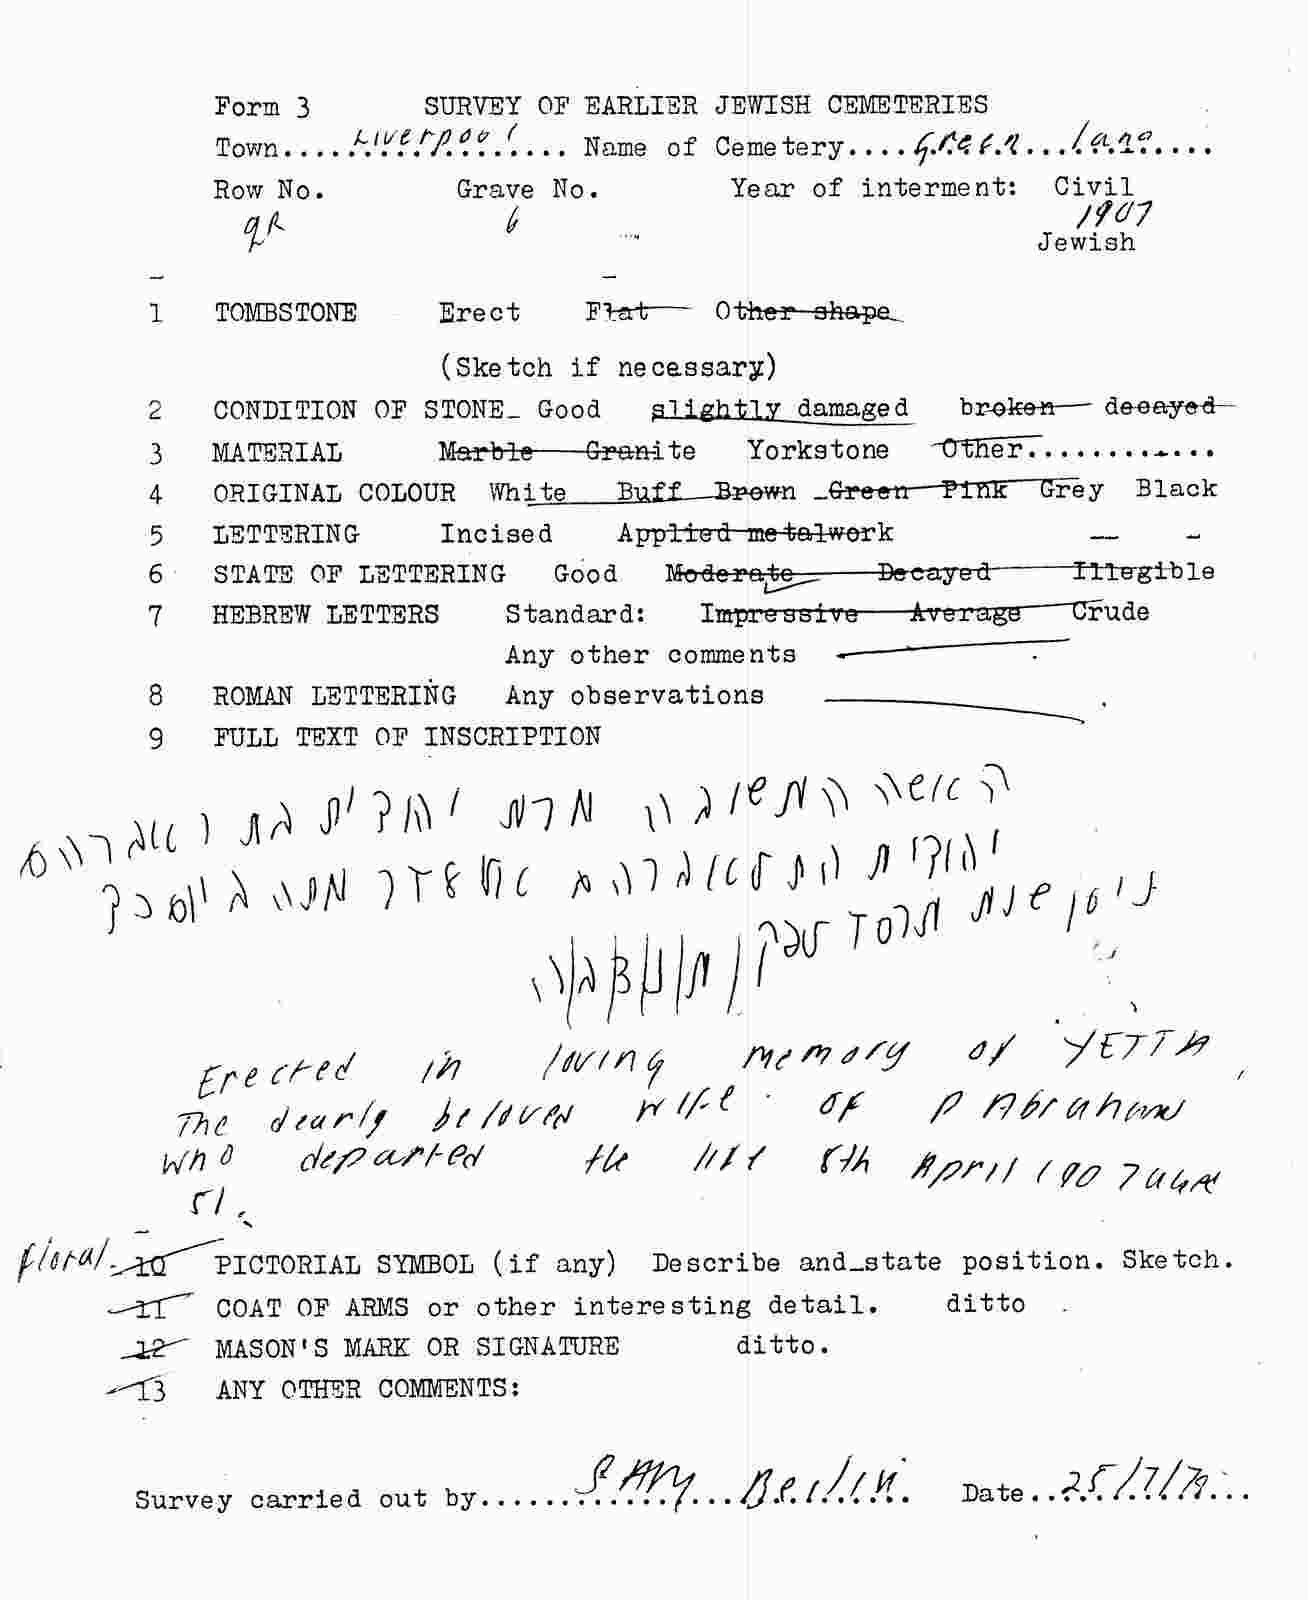 Form 3 SURVEY OF EARLIER JEWISH CEMETERIES
Town....Liverpool.... Name of Cemetery....Green...Lane....
Row No. Grave No. Year of interment: Civil
6 1907
Jewish
1 TOMBSTONE Erect Flat Other shape
(Sketch if necessary)
2 CONDITION OF STONE Good slightly damaged broken decayed
3 MATERIAL Marble Granite Yorkstone Other............
4 ORIGINAL COLOUR White Buff Brown Green Pink Grey Black
5 LETTERING Incised Applied metalwork
6 STATE OF LETTERING Good Moderate Decayed Illegible
7 HEBREW LETTERS Standard: Impressive Average Crude
Any other comments
8 ROMAN LETTERING Any observations
9 FULL TEXT OF INSCRIPTION
האשה החשובה מרת יהודית בת ר אברהם
יהודית
ניסן שנת תרסז לפק תנצבה
Erected in loving memory of YETTA
The dearly beloved wife of P Abrahams
who departed the life 8th April 1907 aged
51.
floral. 10 PICTORIAL SYMBOL (if any) Describe and state position. Sketch.
11 COAT OF ARMS or other interesting detail. ditto
12 MASON'S MARK OR SIGNATURE ditto.
13 ANY OTHER COMMENTS:
Survey carried out by............ Berlin. Date..25/7/79...